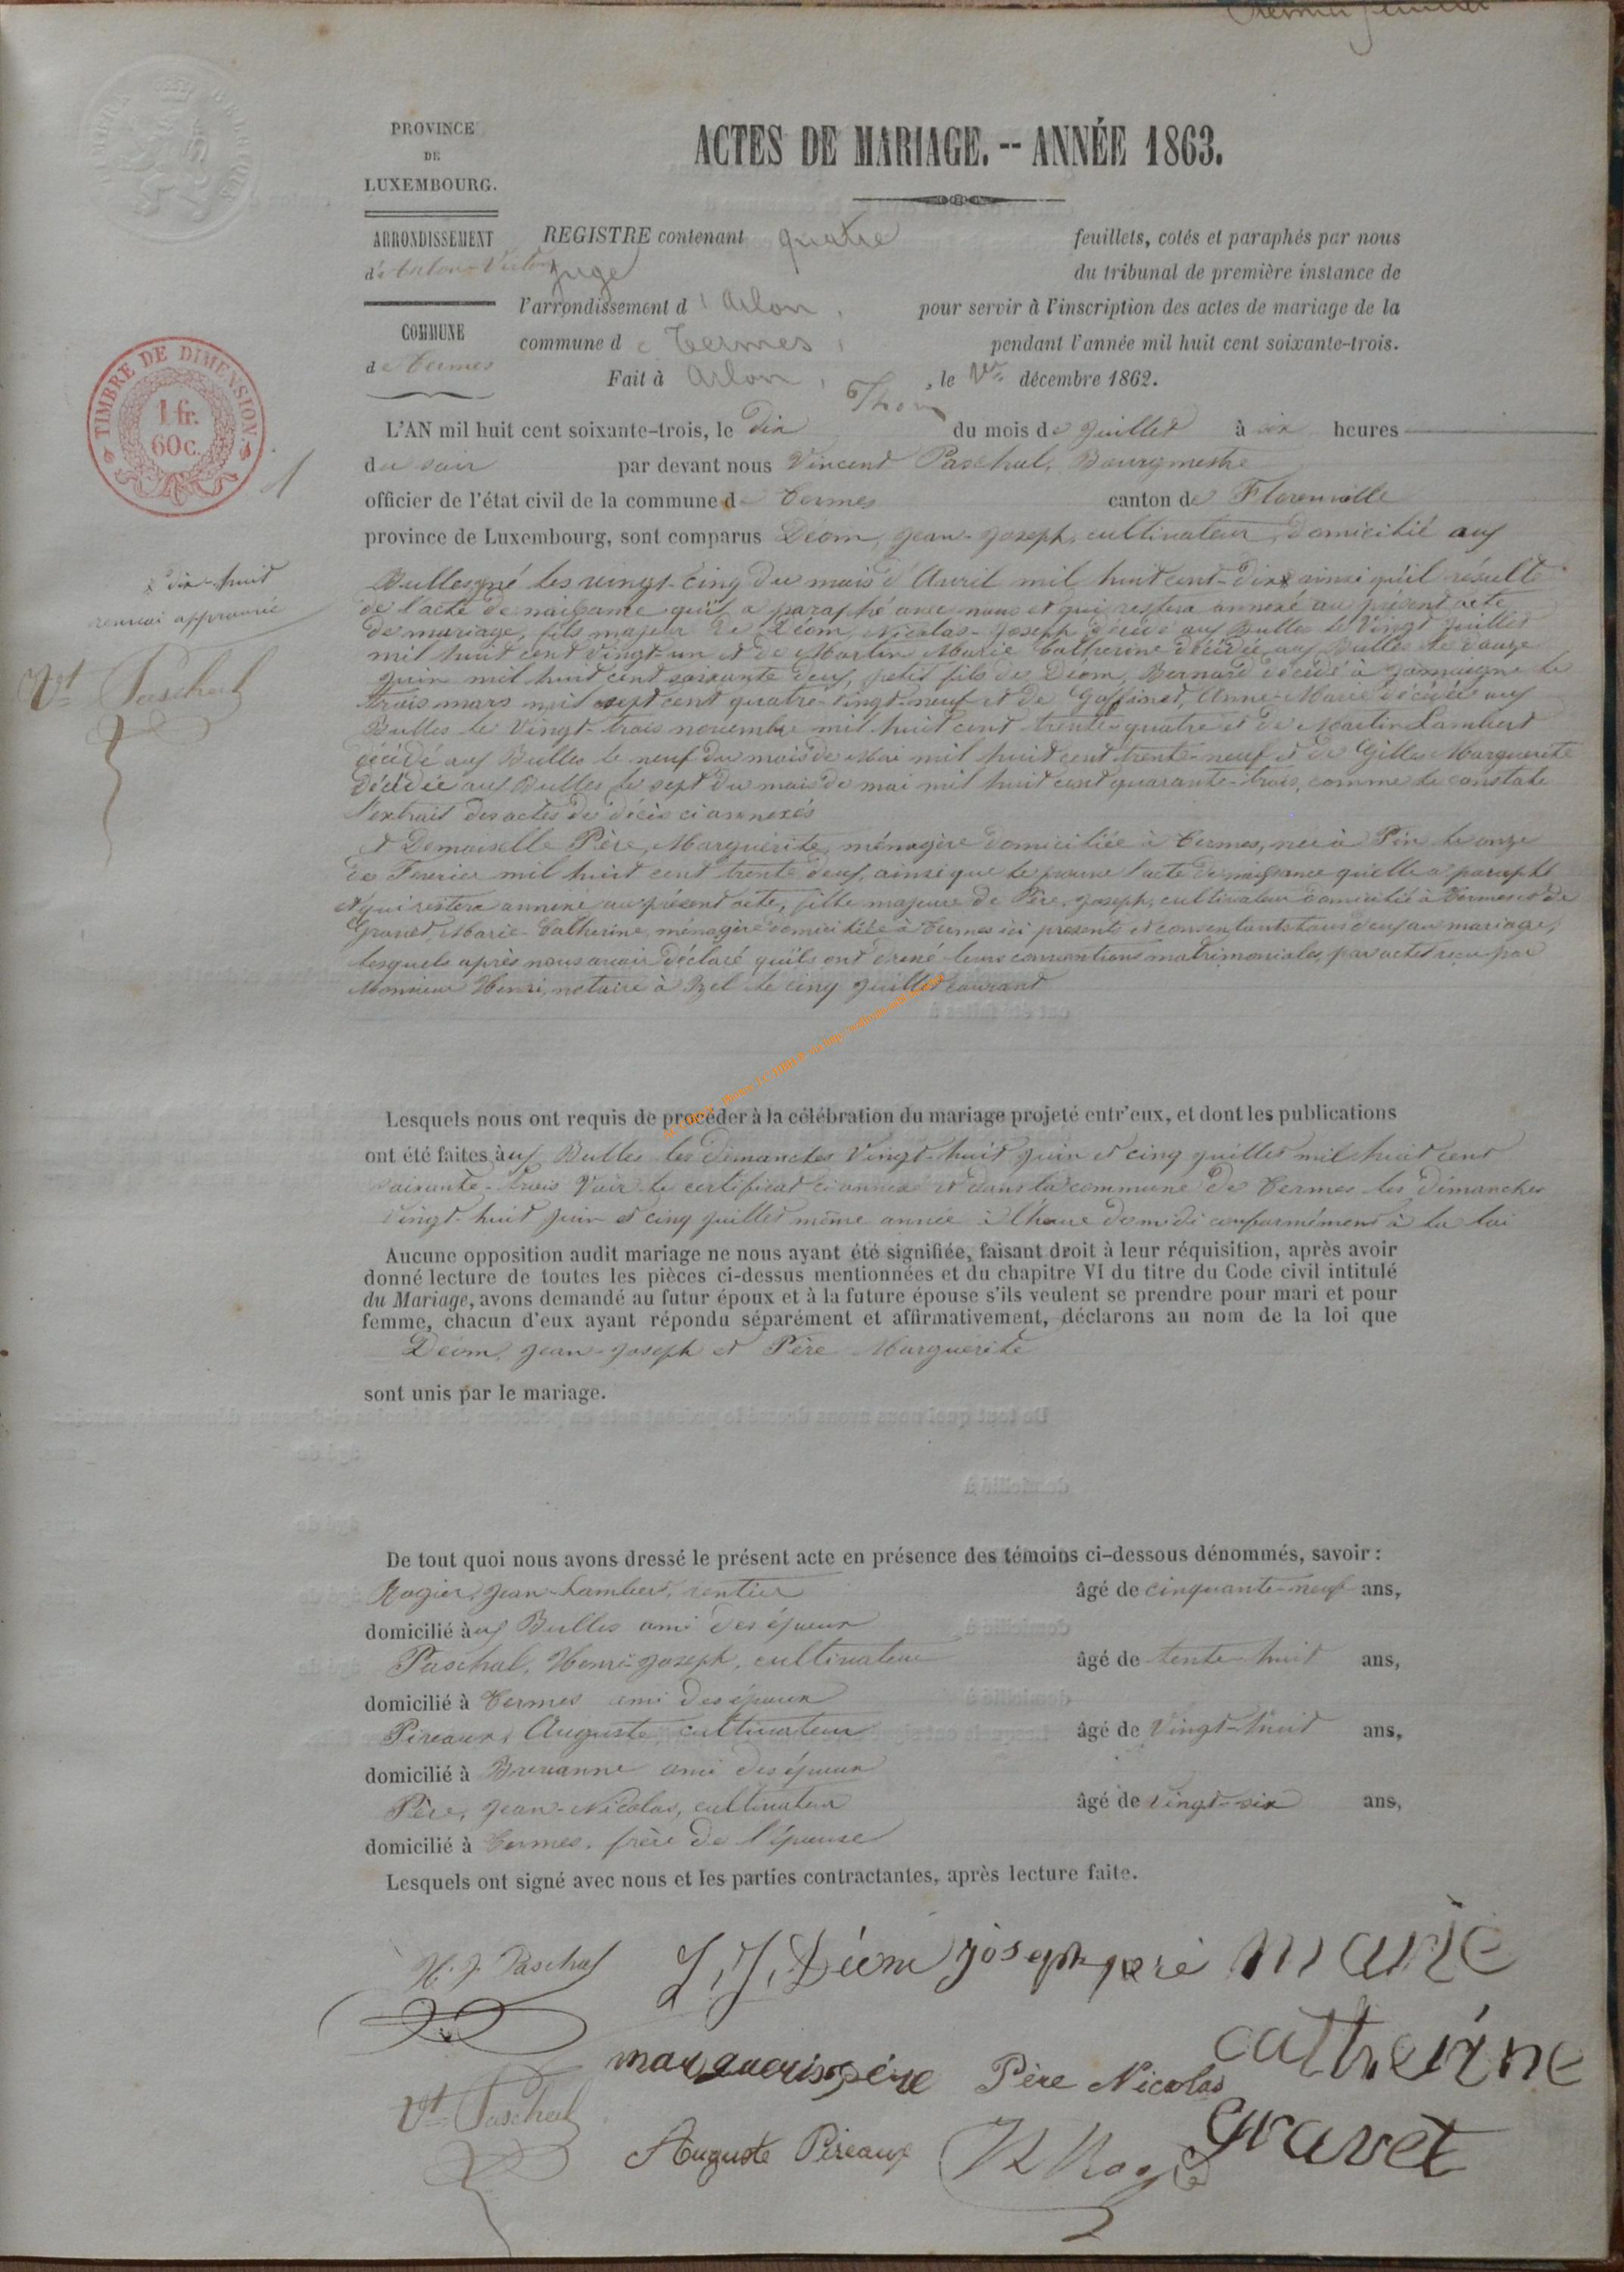 Premier feuillet
PROVINCE
DE
LUXEMBOURG.
ACTES DE MARIAGE. -- ANNÉE 1863.
ARRONDISSEMENT
d'Arlon-Virton
COMMUNE
de Termes
REGISTRE contenant quatre feuillets, cotés et paraphés par nous
juge du tribunal de première instance de
l'arrondissement d'Arlon, pour servir à l'inscription des actes de mariage de la
commune de Termes, pendant l'année mil huit cent soixante-trois.
Fait à Arlon, le 1er décembre 1862.
TIMBRE DE DIMENSION
1 fr.
60c.
1
L'AN mil huit cent soixante-trois, le dix du mois de juillet à six heures
du soir par devant nous Vincent Paschal, Bourgmestre
officier de l'état civil de la commune de Termes canton de Florenville
province de Luxembourg, sont comparus Déom, Jean-Joseph, cultivateur, domicilié aux
x dix-huit
renvoi approuvé
Vt Paschal
Bulles y né les vingt-cinq du mois d'Avril mil huit cent-dix x ainsi qu'il résulte
de l'acte de naissance qu'il a paraphé avec nous et qui restera annexé au présent acte
de mariage, fils majeur de Déom, Nicolas-Joseph décédé aux Bulles le vingt juillet
mil huit cent vingt-un et de Martin Marie Catherine décédée aux Bulles le douze
juin mil huit cent soixante deux, petit fils de Déom, Bernard décédé à Jamoigne le
trois mars mil sept cent quatre-vingt-neuf et de Goffinet, Anne-Marie décédée aux
Bulles le vingt-trois novembre mil huit cent trente-quatre et de Martin Lambert
décédé aux Bulles le neuf du mois de Mai mil huit cent trente-neuf et de Gilles Marguerite
décédée aux Bulles le sept du mois de mai mil huit cent quarante-trois, comme le constate
l'extrait des actes de décès ci annexés
et Demoiselle Père, Marguérite, ménagère domiciliée à Termes, née à Pin le onze
de Fevrier mil huit cent trente deux, ainsi que le prouve l'acte de naissance qu'elle a paraphé
et qui restera annexé au présent acte, fille majeure de Père, Joseph, cultivateur domicilié à Termes et de
Gravet, Marie-Catherine, ménagère domiciliée à Termes ici présents et consentants tous deux au mariage,
lesquels après nous avoir déclaré qu'ils ont dressé leurs conventions matrimoniales, par actes reçu par
Monsieur Henri, notaire à Izel le cinq juillet courant
Lesquels nous ont requis de procéder à la célébration du mariage projeté entr'eux, et dont les publications
ont été faites aux Bulles les dimanches vingt-huit juin et cinq juillet mil huit cent
soixante-trois voir le certificat ci annexé et dans la commune de Termes les dimanches
vingt-huit juin et cinq juillet même année à l'heure de midi conformément à la loi
Aucune opposition audit mariage ne nous ayant été signifiée, faisant droit à leur réquisition, après avoir
donné lecture de toutes les pièces ci-dessus mentionnées et du chapitre VI du titre du Code civil intitulé
du Mariage, avons demandé au futur époux et à la future épouse s'ils veulent se prendre pour mari et pour
femme, chacun d'eux ayant répondu séparément et affirmativement, déclarons au nom de la loi que
Déom, Jean-Joseph et Père Marguérite
sont unis par le mariage.
De tout quoi nous avons dressé le présent acte en présence des témoins ci-dessous dénommés, savoir :
Rogier, Jean-Lambert, rentier âgé de cinquante-neuf ans,
domicilié aux Bulles ami des époux
Paschal, Henri-Joseph, cultivateur âgé de tente-huit ans,
domicilié à Termes ami des époux
Pireaux, Auguste, cultivateur âgé de vingt-huit ans,
domicilié à Breuvanne ami des époux
Père, Jean-Nicolas, cultivateur âgé de vingt-six ans,
domicilié à Termes, frère de l'épouse
Lesquels ont signé avec nous et les parties contractantes, après lecture faite.
H. J. Paschal J. J. Déom joseph pere marie
catherine
Père Nicolas
Vt Paschal gravet
Auguste Pireaux